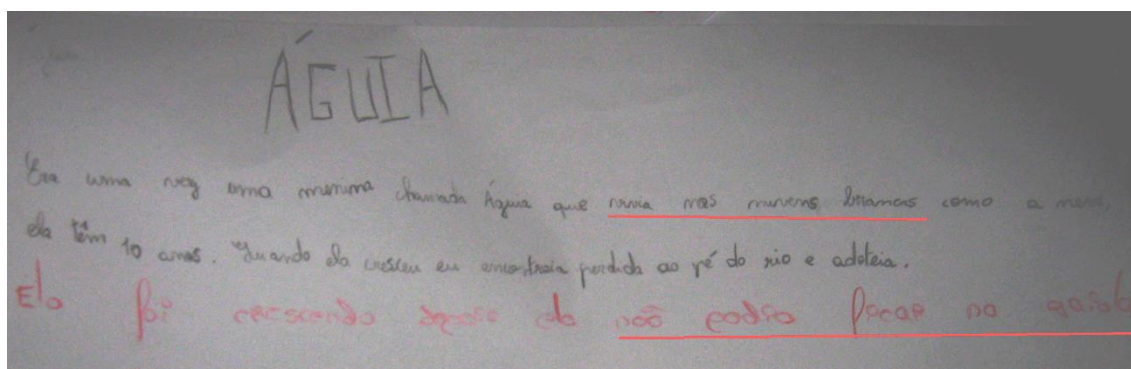 ÁGUIA
Era uma vez uma menina chamada Águia que vivia nas nuvens brancas como a neve,
ela têm 10 anos. Quando ela cresceu eu encontreia perdida ao pé do rio e adoteia.
Ela foi crescendo depois ela não podia ficar na gaiola